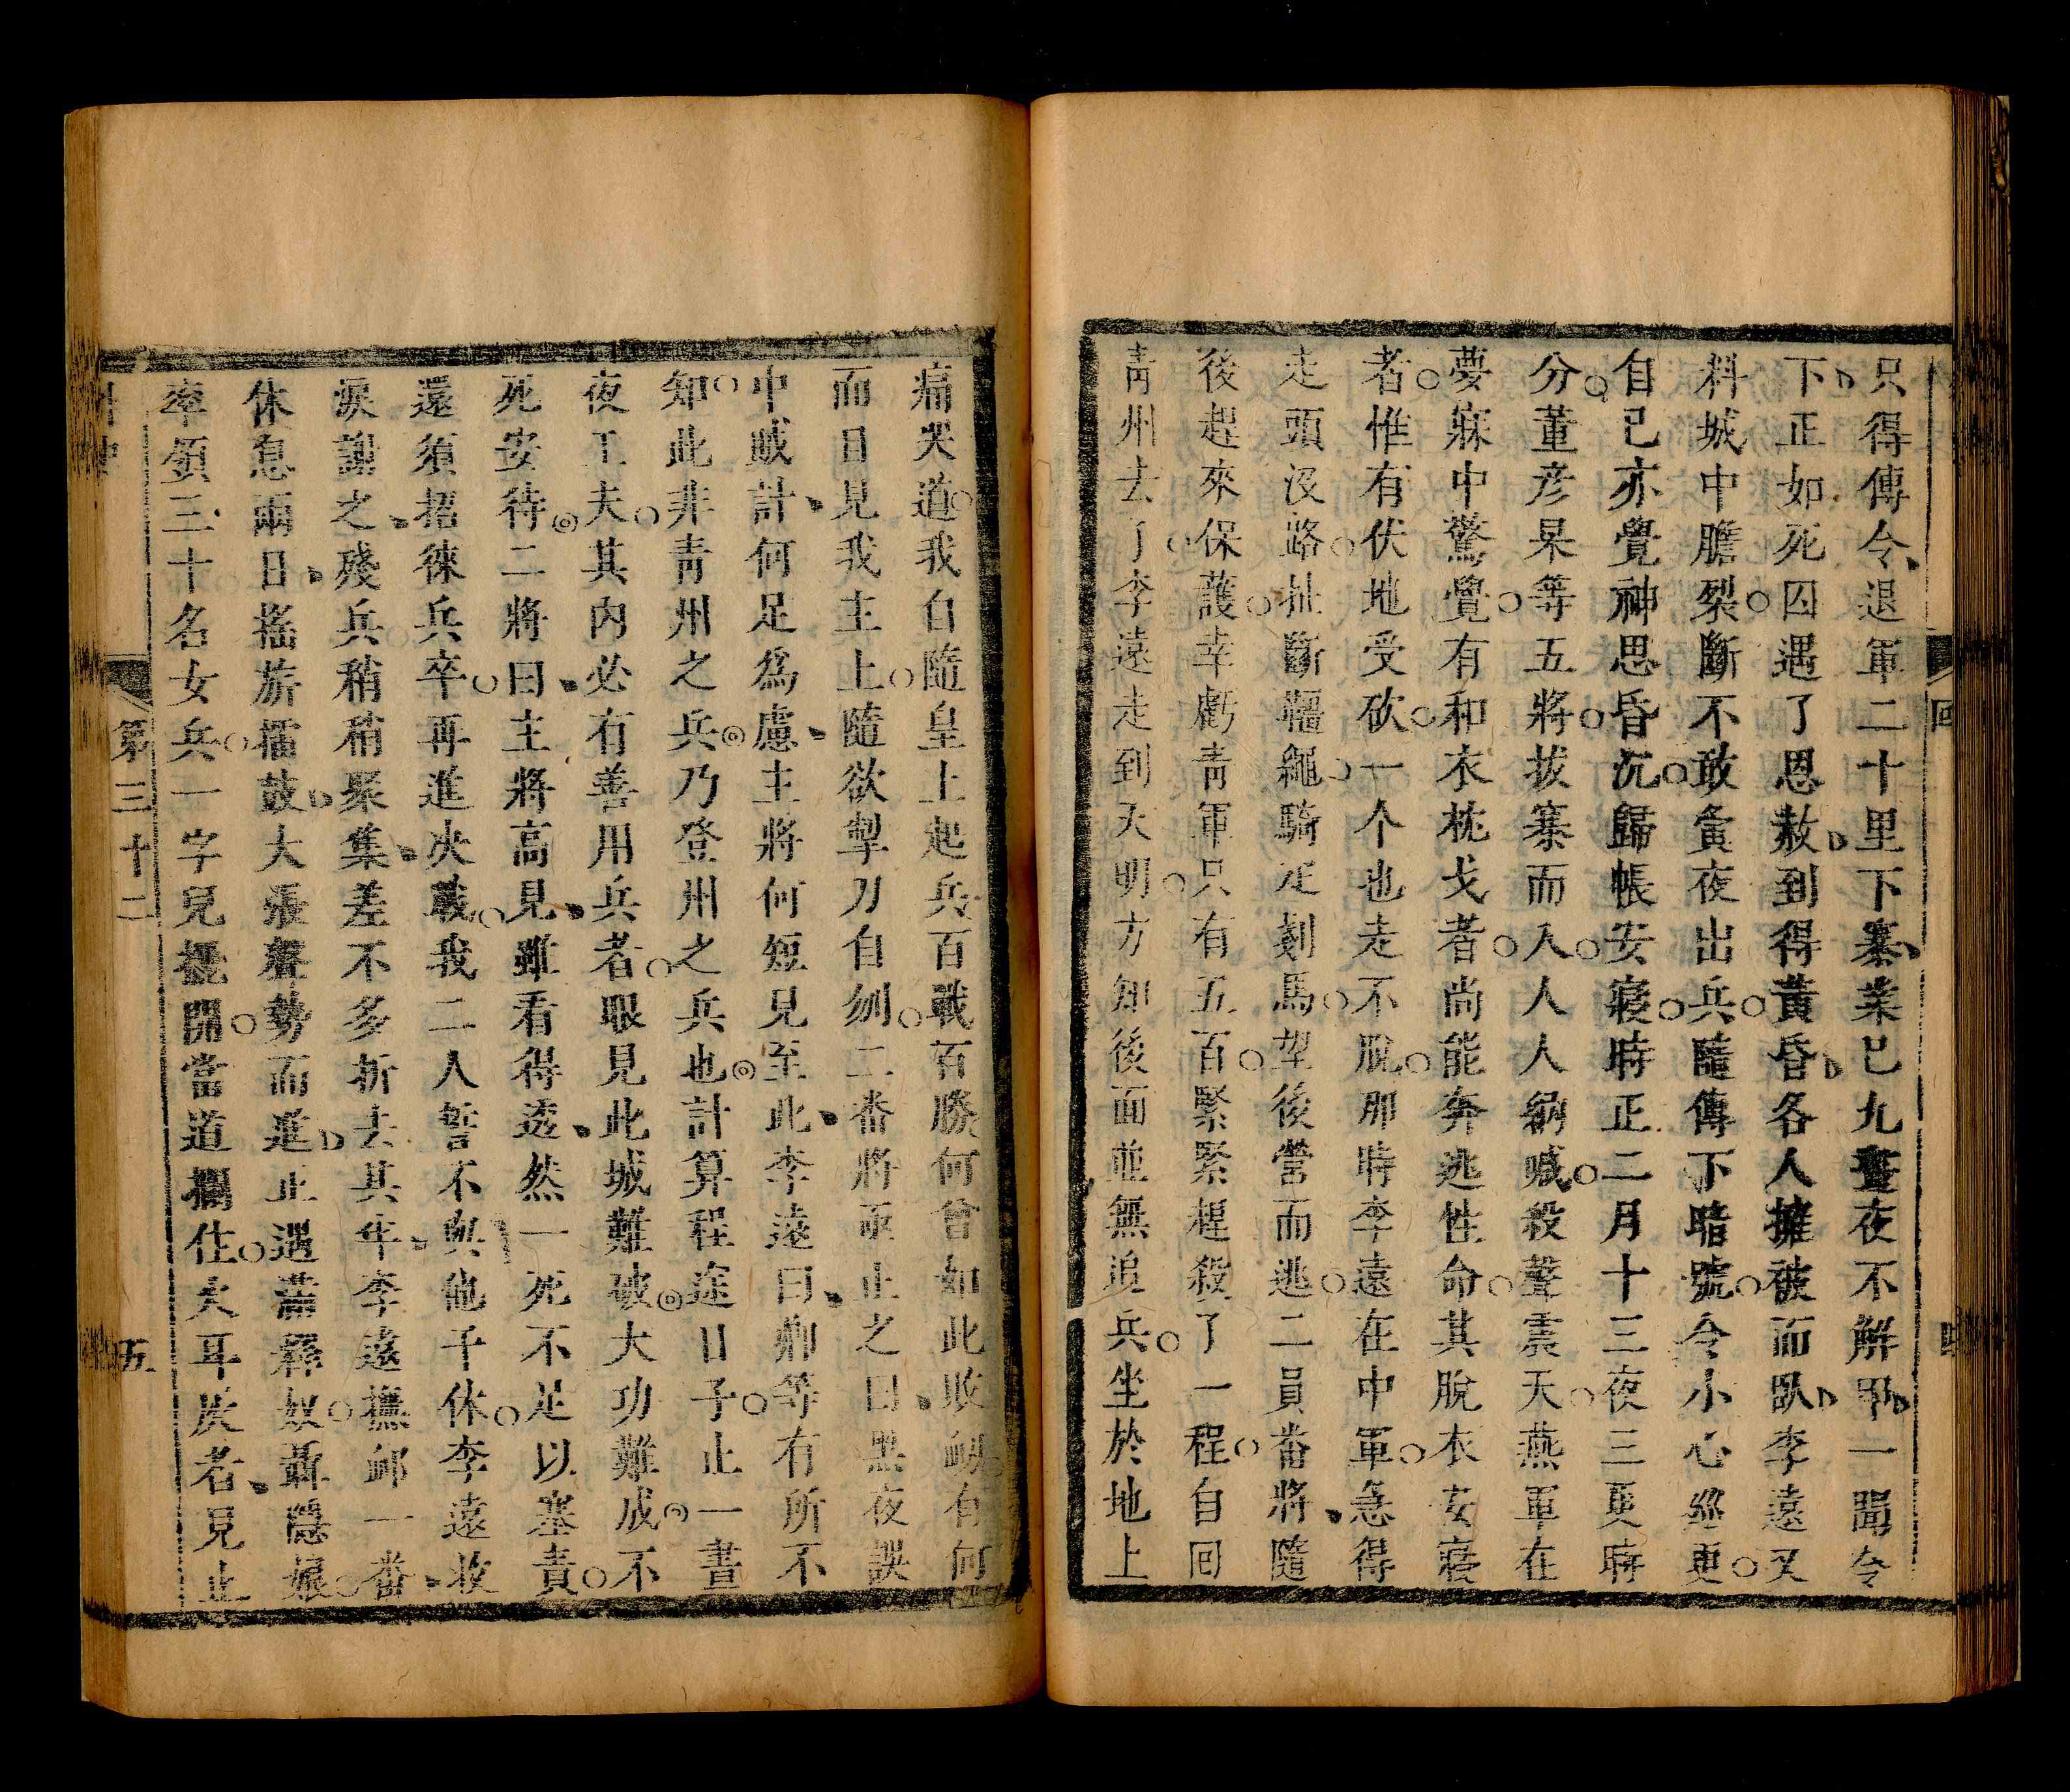 只得傳令退軍二十里下寨業已九晝夜不解甲一聞令
下正如死囚遇了恩赦到得黃昏各人擁被而臥李遠又
料城中膽裂斷不敢夤夜出兵隨傳下暗號令小心巡更
自己亦覺神思昏沉歸帳安寢時正二月十三夜三更時
分董彥杲等五將拔寨而入人人吶喊殺聲震天燕軍在
夢寐中驚覺有和衣枕戈者尚能奔逃性命其脫衣安寢
者惟有伏地受砍一个也走不脫那時李遠在中軍急得
走頭沒路扯斷韁繩騎足剗馬望後營而逃二員番將隨
後趕來保護幸虧青軍只有五百緊緊趕殺了一程自囘
青州去了李遠走到天明方知後面並無追兵坐於地上
痛哭道我自隨皇上起兵百戰百勝何曾如此敗衂有何
面目見我主上隨欲掣刀自刎二番將亟止之曰黑夜誤
中賊計何足爲慮主將何短見至此李遠曰卿等有所不
知此非青州之兵乃登州之兵也計算程途日子止一晝
夜工夫其內必有善用兵者眼見此城難破大功難成不
死安待二將曰主將高見雖看得透然一死不足以塞責
還須招徠兵卒再進決戰我二人誓不與他干休李遠收
淚謝之殘兵稍稍聚集差不多折去其半李遠撫卹一番
休息兩日搖旂擂鼓大張聲勢而進止遇滿釋奴聶隱娘
率領三十名女兵一字兒擺開當道攔住火耳灰者見止
第三十二
五